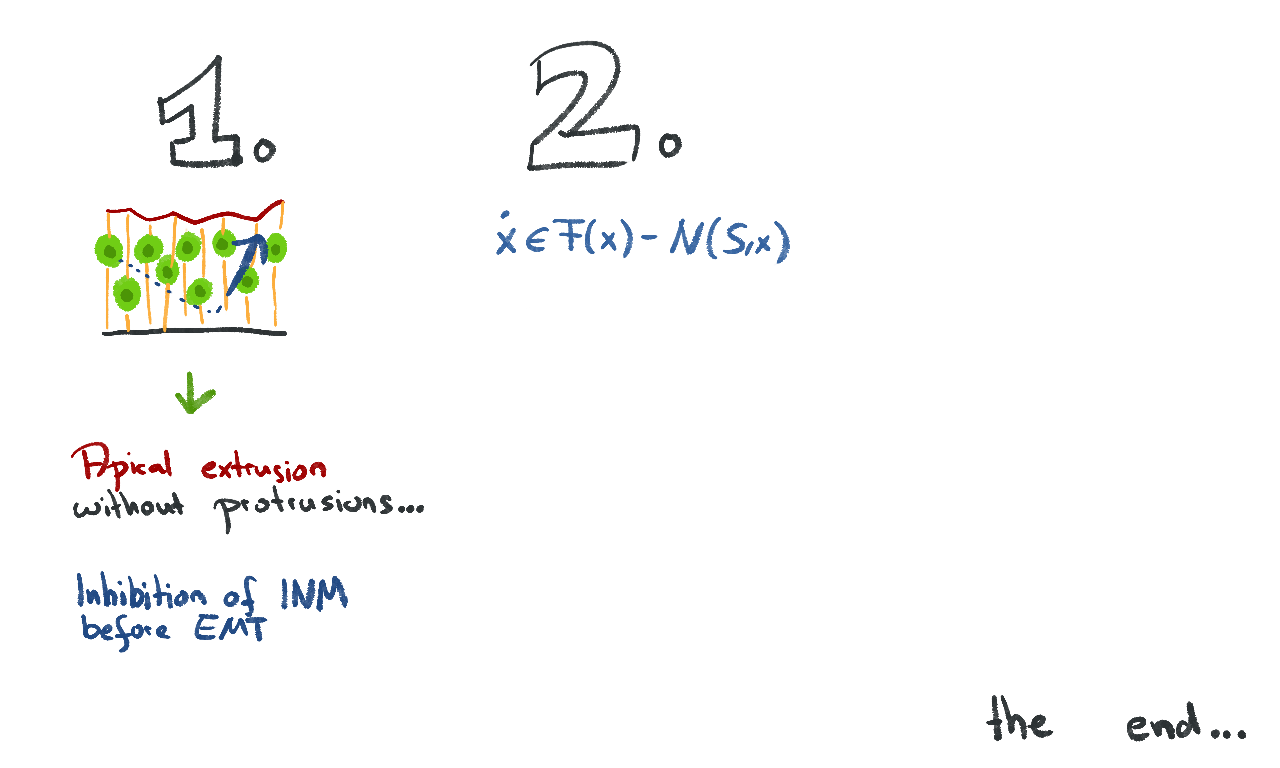 1.
2.
ẋ ∈ F(x) - N(S,x)
Apical extrusion
without protrusions...
Inhibition of INM
before EMT
the end...